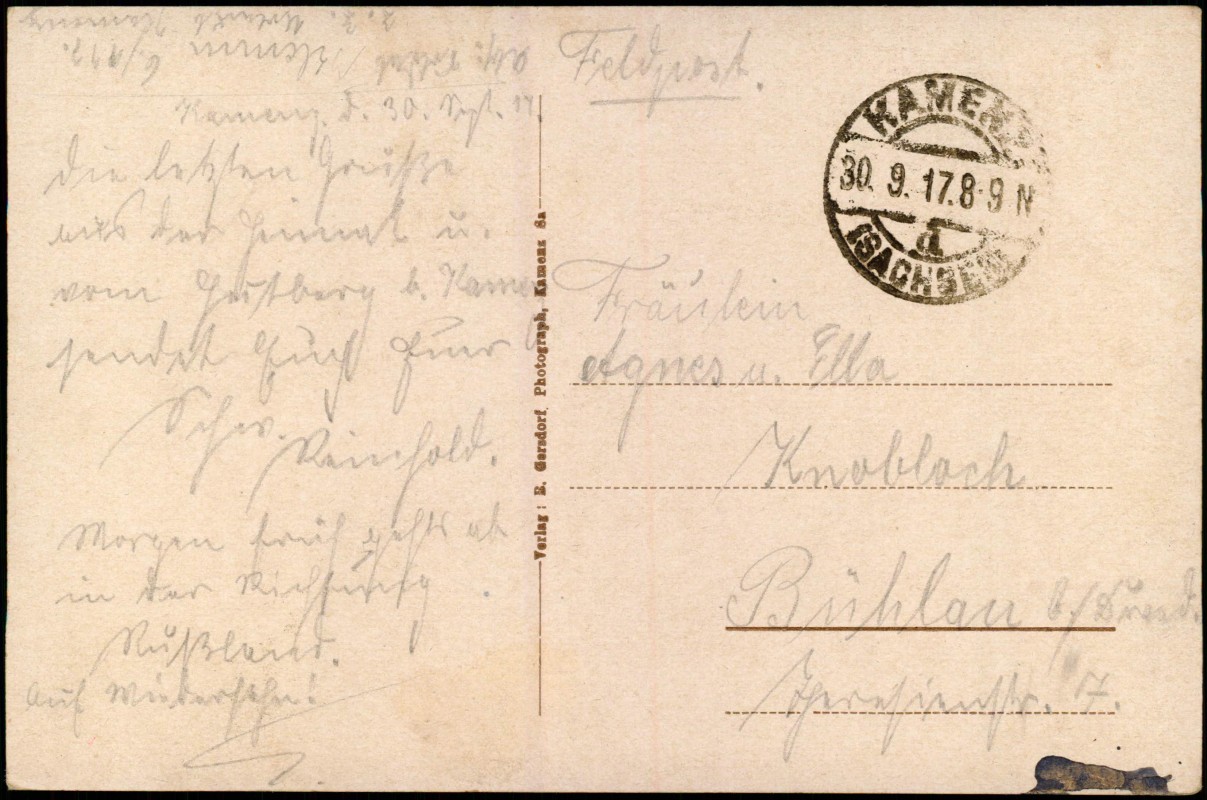 Kamenz, d. 30. Sept. 17.
Die letzten Grüße
aus der Heimat u.
vom Hutberg b. Kamenz
sendet Euch Euer
Schw.
Reinhold.
Morgen früh gehts ab
in der Richtung
Rußland.
Auf Wiedersehn!
Verlag: E. Gersdorf, Photograph, Kamenz Sa
Feldpost.
KAMENZ
30. 9. 17. 8-9 N
d
(SACHSEN)
Fräulein
Agnes u. Ella
Knobloch
Bühlau b/Dresd.
Theresienstr. 7.